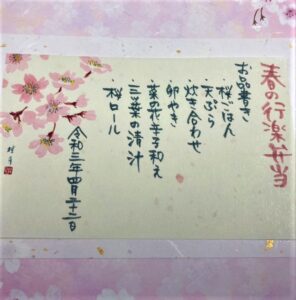 春の行楽弁当
お品書き
・桜ごはん
・天ぷら
・炊き合わせ
・卵やき
・菜の花辛子和え
・三つ葉の清汁
・桜ロール
令和三年四月二十二日